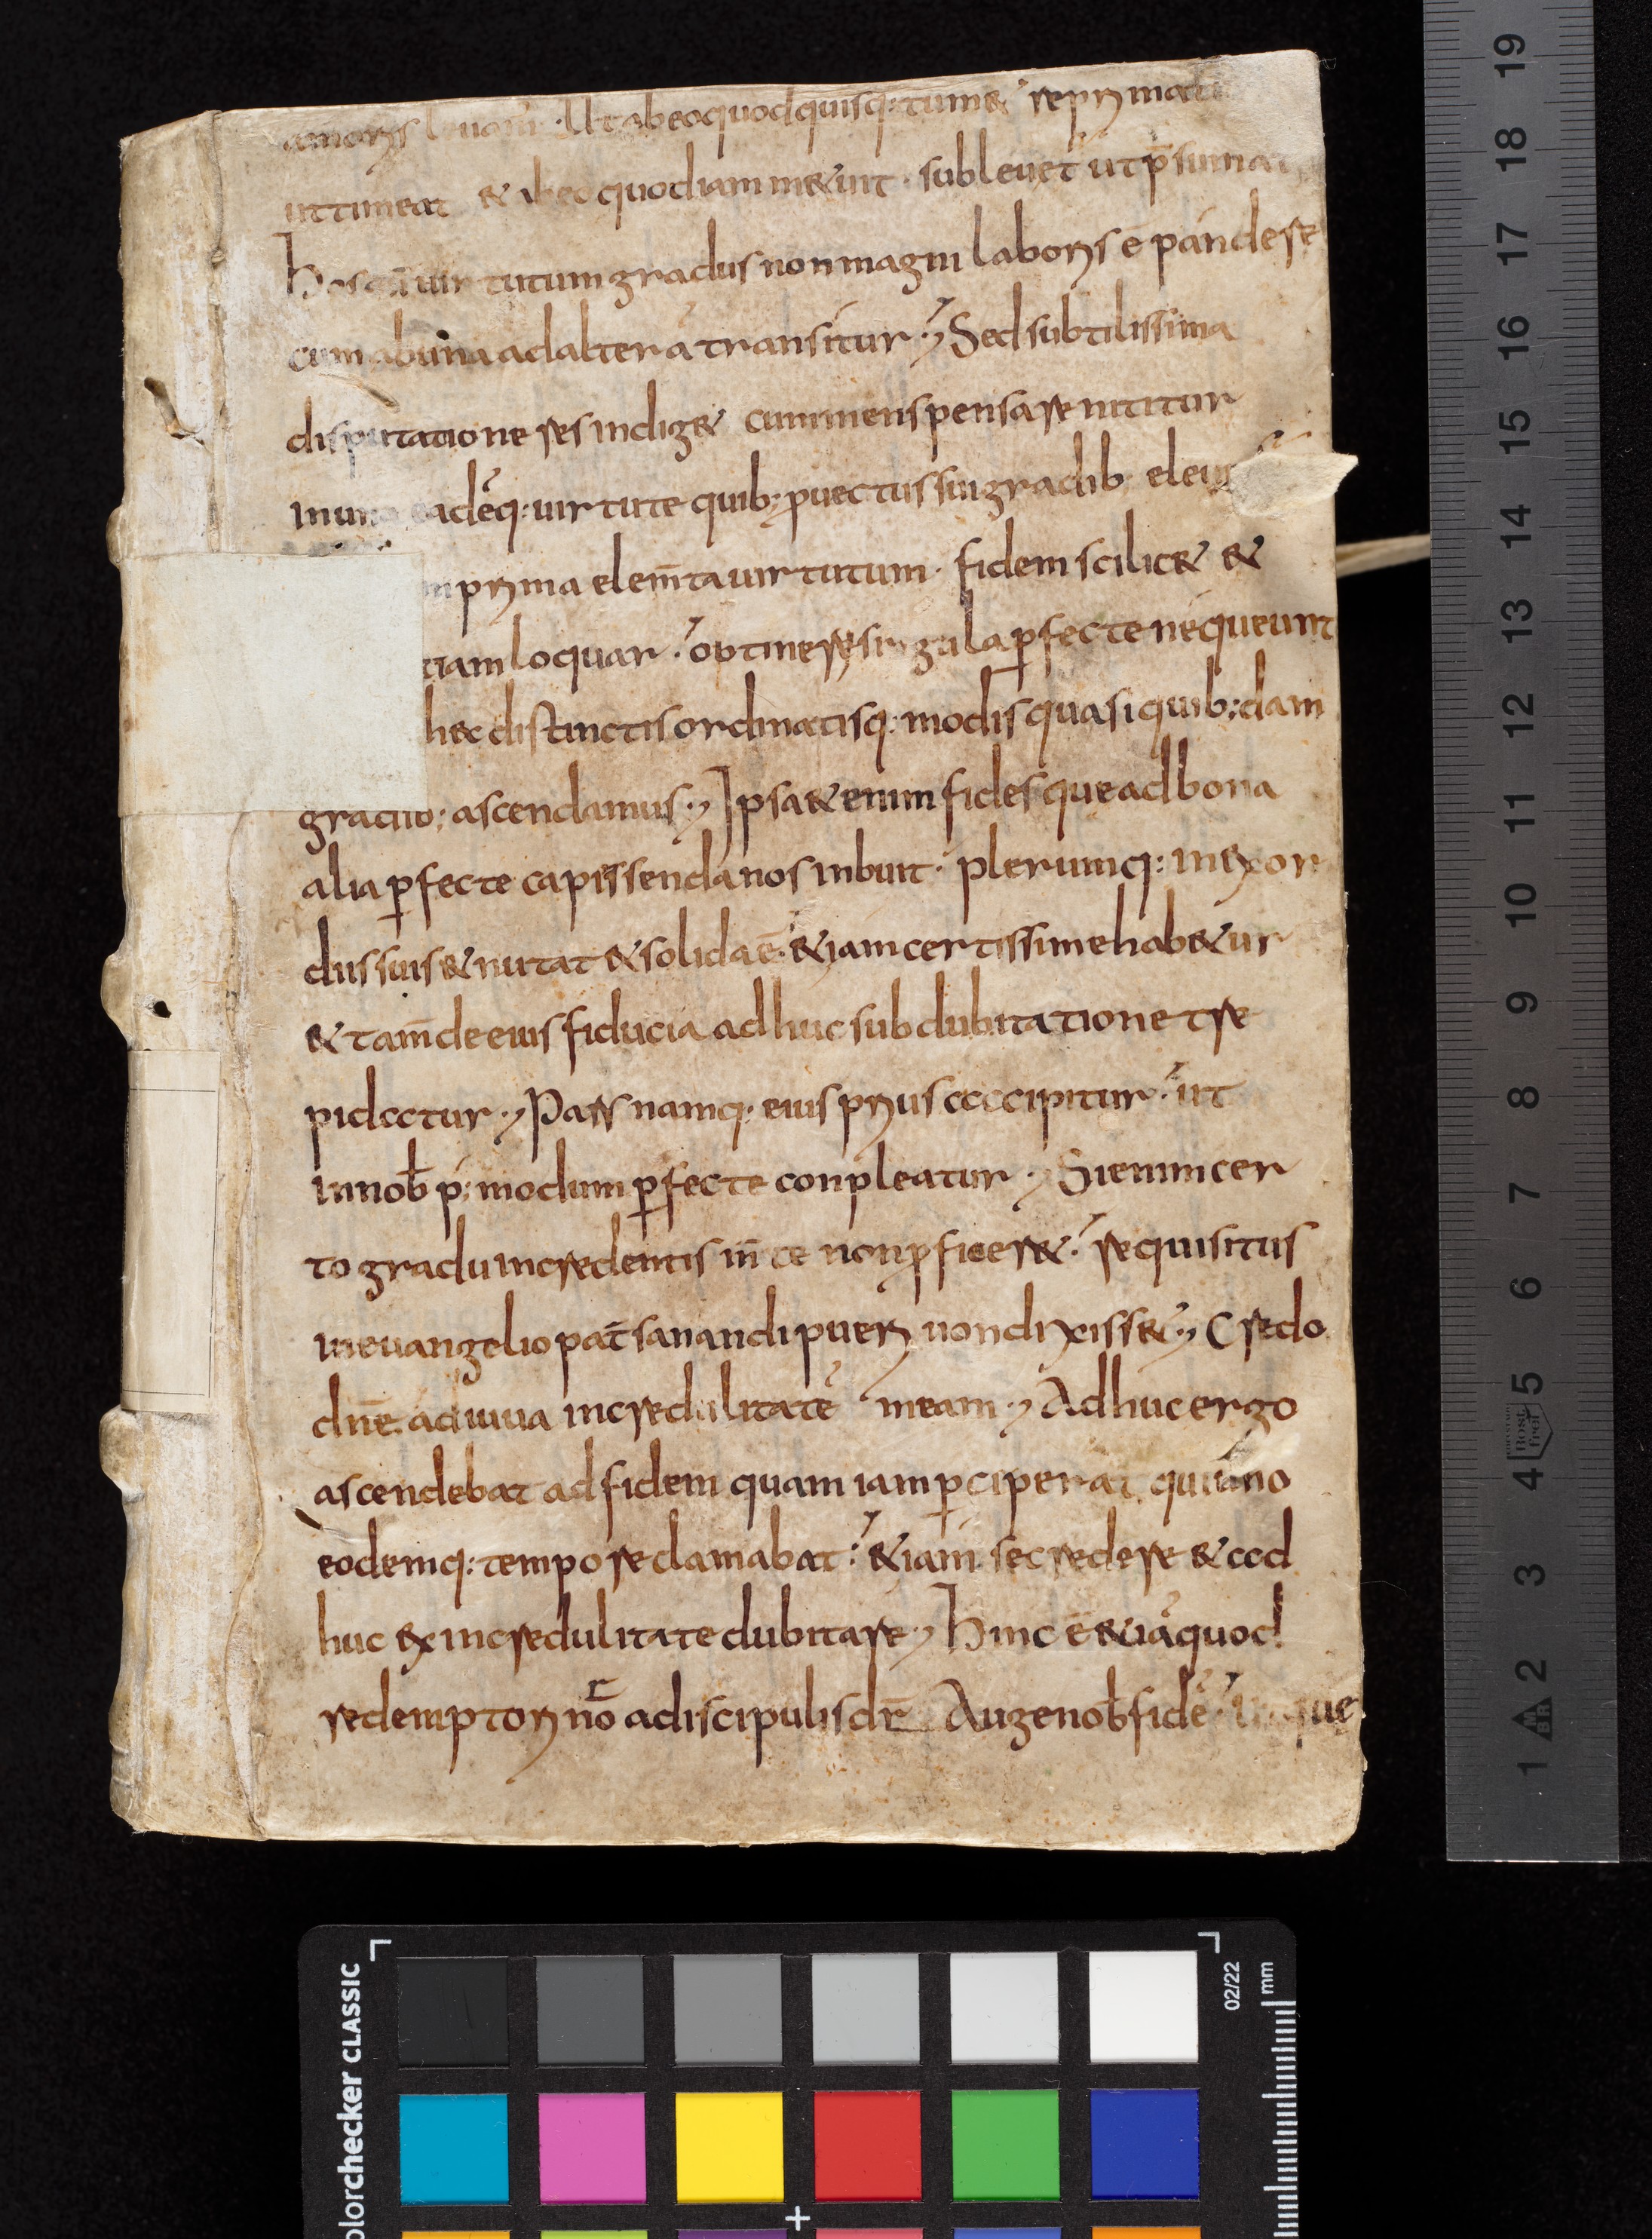 amoris leuam · Ut ab eo quod quisq: tum& reprimat
ut timeat & ab eo quod iam m&uit · subleuet ut p̄sumat
Hos tā uirtutum gradus non magni laboris ē pandere
cum ab una ad alterā transitur · Sed subtilissima
disputatione res indig& cum mens pensare nititur
in una eadēq: uirtute quib; ꝓuectus sui gradib
prima elem̄ta uirtutum · fidem scilic& &
tiam loquar · optinere singula ꝑfecte nequeunt
hec distinctis ordinatisq: modis quasi quib;dam
gradib; ascendamus · Ipsa &enim fides que ad bona
alia ꝑfecte capissenda nos inbuit · plerumq: in exor
diis suis & nutat & solida ē · & iam certissime hab&ur
& tam̄ de eius fiducia adhuc sub dubitatione tre
pidatur · Pars namq: eius prius accipitur · ut
in nob̄ p; modum ꝑfecte conpleatur · Si enim cer
to gradu in credentis m̄te non ꝓficer& · requisitus
in euangelio pat̄ sanandi pueri non dixiss& · Credo
dn̄e adiuua incredulitatē meam · Adhuc ergo
ascendebat ad fidem quam iam ꝑciperat qui uno
eodemq: tempore clamabat · & iam se credere & ad
huc ex incredulitate dubitare · Hinc ē &iā quod
redemptori nr̄o a discipulis dr̄ Auge nob̄ fidē
02/22
mm
colorchecker CLASSIC
19
18
17
16
15
14
13
12
11
10
9
8
7
6
5
4
3
2
1